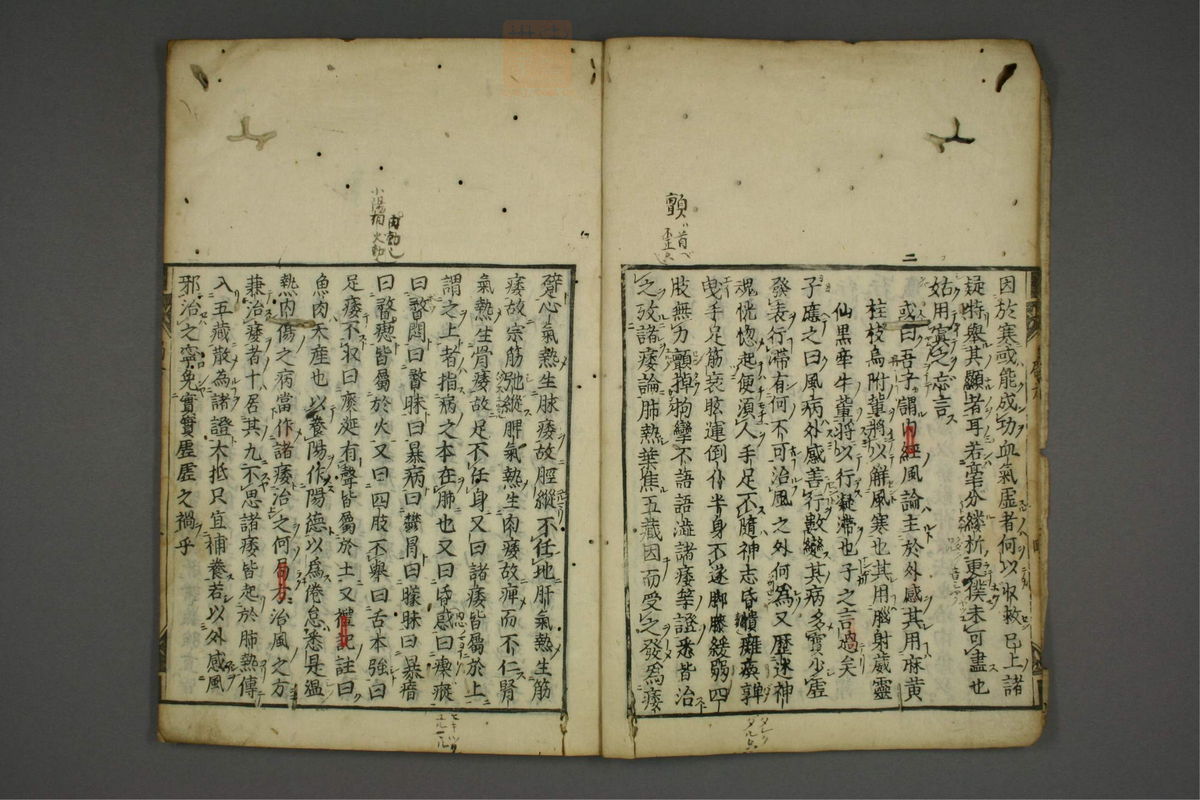 因於寒或能成功血氣虛者何以収救已上諸
疑特舉其顯者耳若毫分縷析更僕未可盡也
姑用寘之忘言
二
或曰吾子謂内經風論主於外感其用麻黄
桂枝烏附輩將以解風寒也其用腦射威靈
仙黒牽牛輩將以行凝滯也子之言過矣
子應之曰風病外感善行數變其病多實少虛
發表行滯有何不可治風之外何爲又歷述神
魂恍惚起便須人手足不隨神志昏憒癱瘓軃
曳手足筋衰眩運倒仆半身不遂脚膝緩弱四
肢無力顫掉拘攣不語語澁諸痿等證悉皆治
之攷諸痿論肺熱葉焦五藏因而受之發爲痿
躄心氣熱生脉痿故脛縱不任地肝氣熱生筋
痿故宗筋弛縱脾氣熱生肉痿故痺而不仁腎
氣熱生骨痿故足不任身又曰諸痿皆屬於上
謂之上者指病之本在肺也又曰昏惑曰瘈瘲
曰瞀悶曰瞀昧曰暴病曰鬱冒曰矇眛曰暴瘖
曰瞀瘛皆屬於火又曰四肢不舉曰舌本強曰
足痿不収曰痰涎有聲皆屬於土又禮記註曰
魚肉天産也以養陽作陽德以爲倦怠悉是温
熱内傷之病當作諸痿治之何局方治風之方
兼治痿者十居其九不思諸痿皆起於肺熱傳
入五藏散為諸證大抵只宜補養若以外感風
邪治之寧免實實虛虛之禍乎